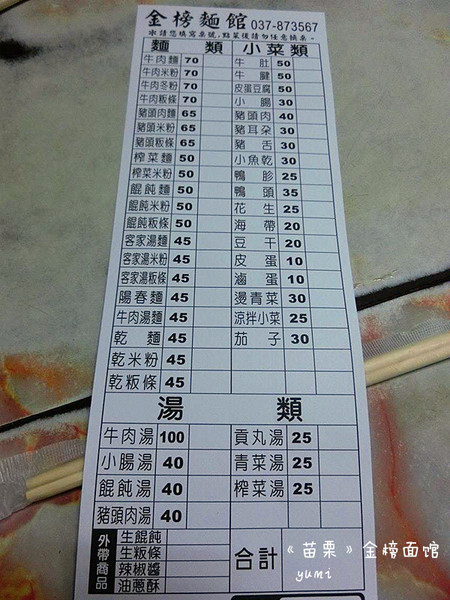 金榜麵館 037-873567
※請您填寫桌號,點菜後請勿任意換桌。
麵類 小菜類
牛肉麵 70 牛肚 50
牛肉米粉 70 牛腱 50
牛肉冬粉 70 皮蛋豆腐 50
牛肉粄條 70 小腸 30
豬頭肉麵 65 豬頭肉 40
豬頭米粉 65 豬耳朵 30
豬頭粄條 65 豬舌 30
榨菜麵 50 小魚乾 30
榨菜米粉 50 鴨胗 25
餛飩麵 50 鴨頭 35
餛飩米粉 50 花生 25
餛飩粄條 50 海帶 20
客家湯麵 45 豆干 20
客家湯米粉 45 皮蛋 10
客家湯粄條 45 滷蛋 10
陽春麵 45 燙青菜 30
牛肉湯麵 45 涼拌小菜 25
乾麵 45 茄子 30
乾米粉 45
乾粄條 45
湯類
牛肉湯 100 貢丸湯 25
小腸湯 40 青菜湯 25
餛飩湯 40 榨菜湯 25
豬頭肉湯 40
外帶商品
生餛飩
生粄條
辣椒醬
油蔥酥
合計
《苗栗》金榜面馆
yumi